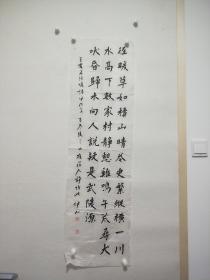 徑暖草如積山晴花更繁縱橫一川
水高下數家村靜憩雞鳴午荒尋犬
吠昏歸來向人說疑是武陵源